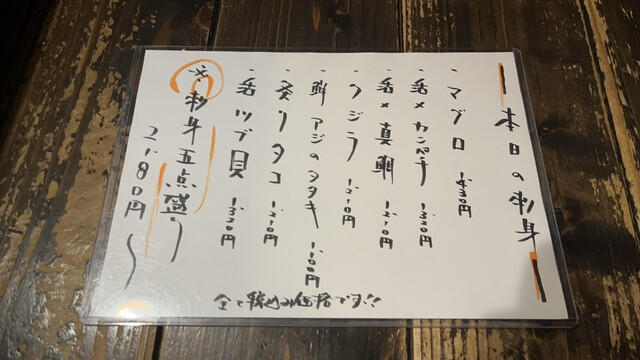 本日の刺身
・マグロ 1,430円
・活〆カンパチ 1,320円
・活〆真鯛 1,210円
・クジラ 1,210円
・鮮アジのタタキ 1,100円
・炙りタコ 1,210円
・活ツブ貝 1,320円
刺身五点盛り
2,180円〜
全て税込み価格です!!